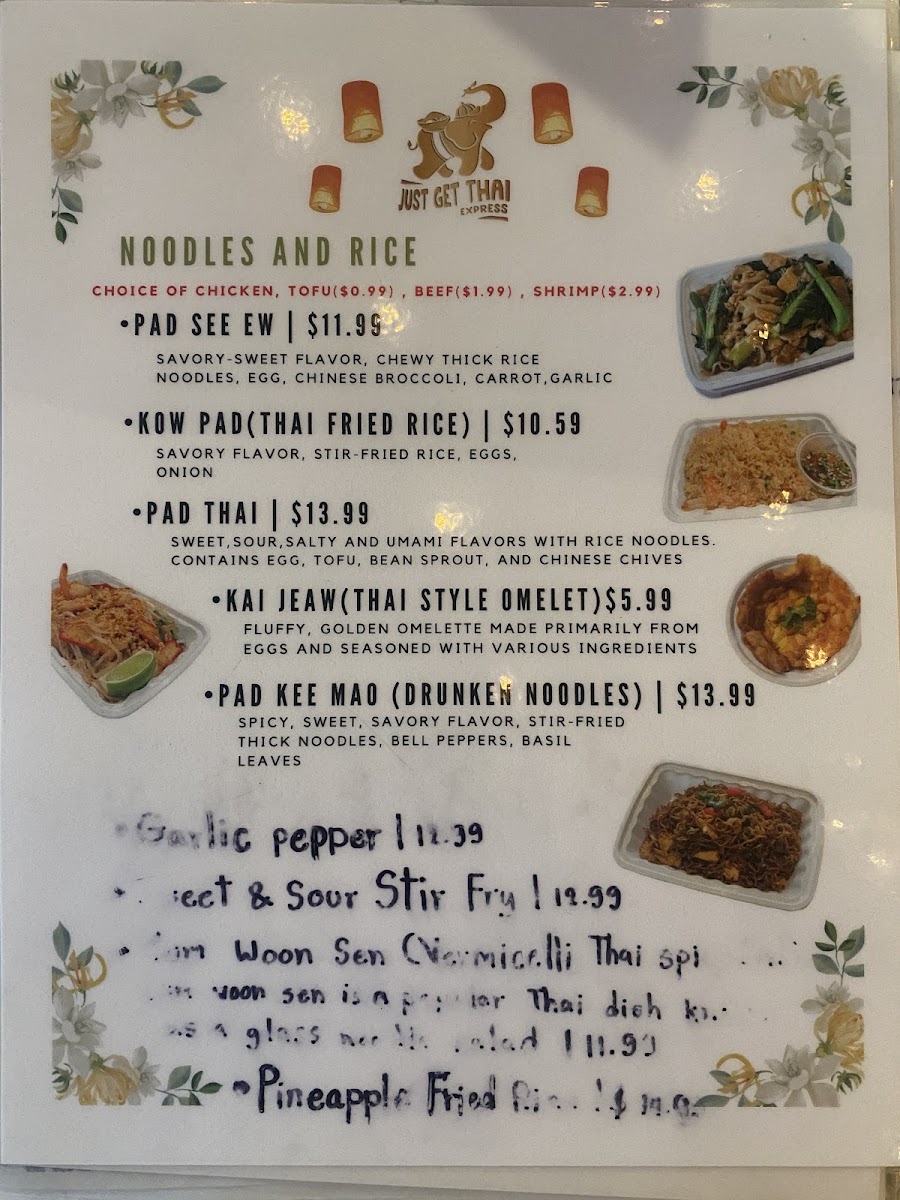 JUST GET THAI
EXPRESS
NOODLES AND RICE
CHOICE OF CHICKEN, TOFU($0.99) , BEEF($1.99) , SHRIMP($2.99)
•PAD SEE EW | $11.99
SAVORY-SWEET FLAVOR, CHEWY THICK RICE
NOODLES, EGG, CHINESE BROCCOLI, CARROT,GARLIC
•KOW PAD(THAI FRIED RICE) | $10.59
SAVORY FLAVOR, STIR-FRIED RICE, EGGS,
ONION
•PAD THAI | $13.99
SWEET,SOUR,SALTY AND UMAMI FLAVORS WITH RICE NOODLES.
CONTAINS EGG, TOFU, BEAN SPROUT, AND CHINESE CHIVES
•KAI JEAW(THAI STYLE OMELET)$5.99
FLUFFY, GOLDEN OMELETTE MADE PRIMARILY FROM
EGGS AND SEASONED WITH VARIOUS INGREDIENTS
•PAD KEE MAO (DRUNKEN NOODLES) | $13.99
SPICY, SWEET, SAVORY FLAVOR, STIR-FRIED
THICK NOODLES, BELL PEPPERS, BASIL
LEAVES
•Garlic pepper |
• & Sour Stir Fry | 12.99
• Woon Sen (Vermicelli Thai
woon sen is a popular Thai dish
as a glass | 11.99
•Pineapple Fried